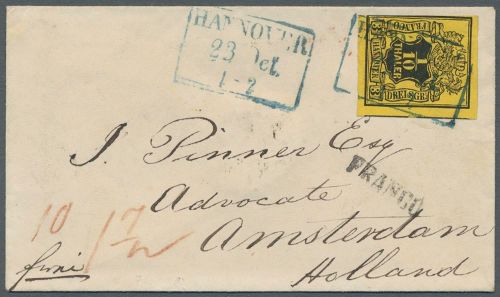 HANNOVER
23 Oct.
1-2
FRANCO
1
10
THALER
DREI SGR
HANNOVER
J. Pinner Esq
FRANCO
Advocate
10
17
Amsterdam
Holland